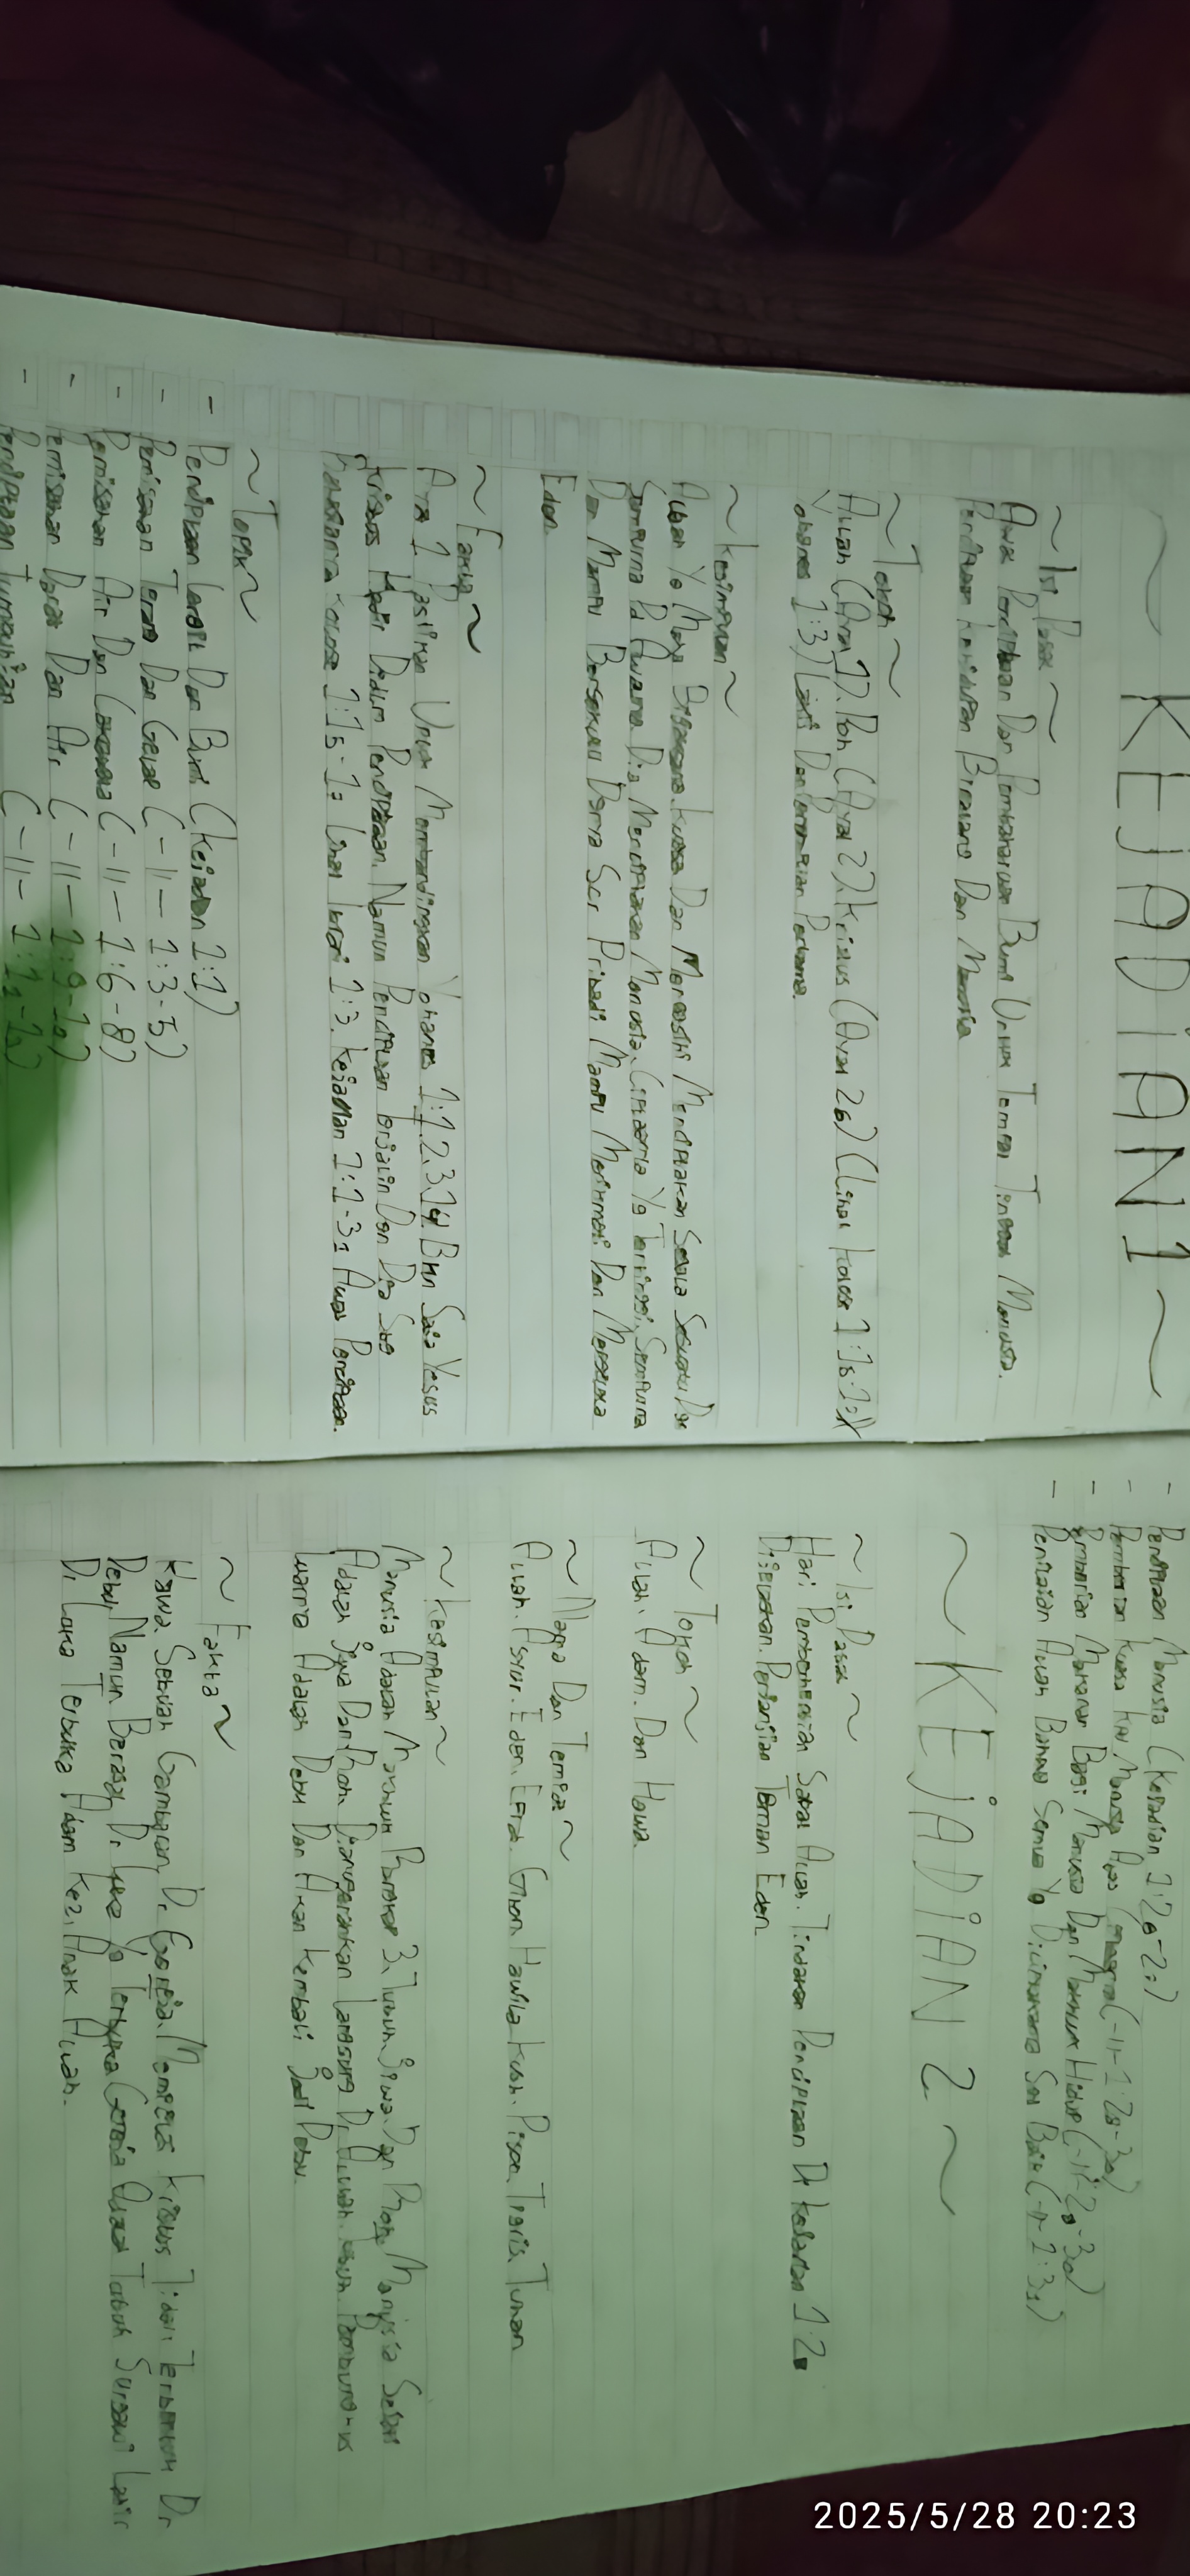 ~ KEJADIAN 1 ~
~ Isi Pasal ~
Awal Penciptaan Dan Pembaharuan Bumi Untuk Tempat Tinggal Manusia.
Penciptaan Kehidupan Binatang Dan Manusia
~ Tokoh ~
Allah (Ayat 1). Roh (Ayat 2). Kristus (Ayat 26) (Lihat Kolose 1:15-17)
Yohanes 1:3)
~ Kesimpulan ~
Allah Yg Maha Bijaksana. Kuasa Dan Mengasihi Menciptakan Segala Sesuatu Dgn
Sempurna Pd Awalnya. Dia Menciptakan Manusia. Ciptaannya Yg Tertinggi. Sempurna
Dan Mampu Bersekutu Dgnnya Scr Pribadi Mampu Menikmati Dan
Eden.
~ Fakta ~
Ayat 1 Pastikan Untuk Membandingkan Yohanes 1:1.2.3.14. Bkn Saja Yesus
Kristus Hadir Dalam Penciptaan. Namun Penciptaan Terjalin Dan Dia Sbg
Kolose 1:15-17 Lihat Ibrani 1:3. Kejadian 1:1-3= Awal Penciptaan.
~ Topik ~
- Penciptaan Langit Dan Bumi (Kejadian 1:1)
- Pemisahan Terang Dan Gelap (-11- 1:3-5)
- Pemisahan Air Dan Cakrawala (-11- 1:6-8)
- Pemisahan Darat Dan Air (-11- 1:9-10)
- Penciptaan Tumbuhan (-11- 1:11-12)
- Penciptaan Manusia (Kejadian 1:26-27)
- Pemberian Kuasa Kpd Manusia Atas (-11- 1:28-30)
- Pemberian Makanan Bagi Manusia Dan Makhluk Hidup (-11- 1:29-30)
- Penilaian Allah Bahwa Semua Yg Sgt Baik (-11- 1:31)
~ KEJADIAN 2 ~
~ Isi Pasal ~
Hari Perhentian Sabat Allah. Tindakan Penciptaan Di Kejadian 1:20
Perjanjian Taman Eden
~ Tokoh ~
Allah. Adam. Dan Hawa.
~ Nama Dan Tempat ~
Allah. Asyur. Eden. Efrat. Gihon. Hawila. Kush. Pison. Tigris. Tuhan
~ Kesimpulan ~
Manusia Adalah Makhluk 3. Tubuh. Jiwa. Dan Roh. Manusia
Adalah Jiwa Dan Roh. Dianugerahkan Langsung Dr Allah. Tubuh
Adalah Debu Dan Akan Kembali Jadi Debu.
~ Fakta ~
Hawa. Sebuah Gambaran Dr Gereja. Mempelai Kristus Tidak Terbentuk Dr
Debu. Namun Berasal Dr Luka Yg Terbuka Gereja Adalah Tubuh Surgawi Lahir
Dr Luka Terbuka Adam Ke2. Anak Allah.
2025/5/28 20:23